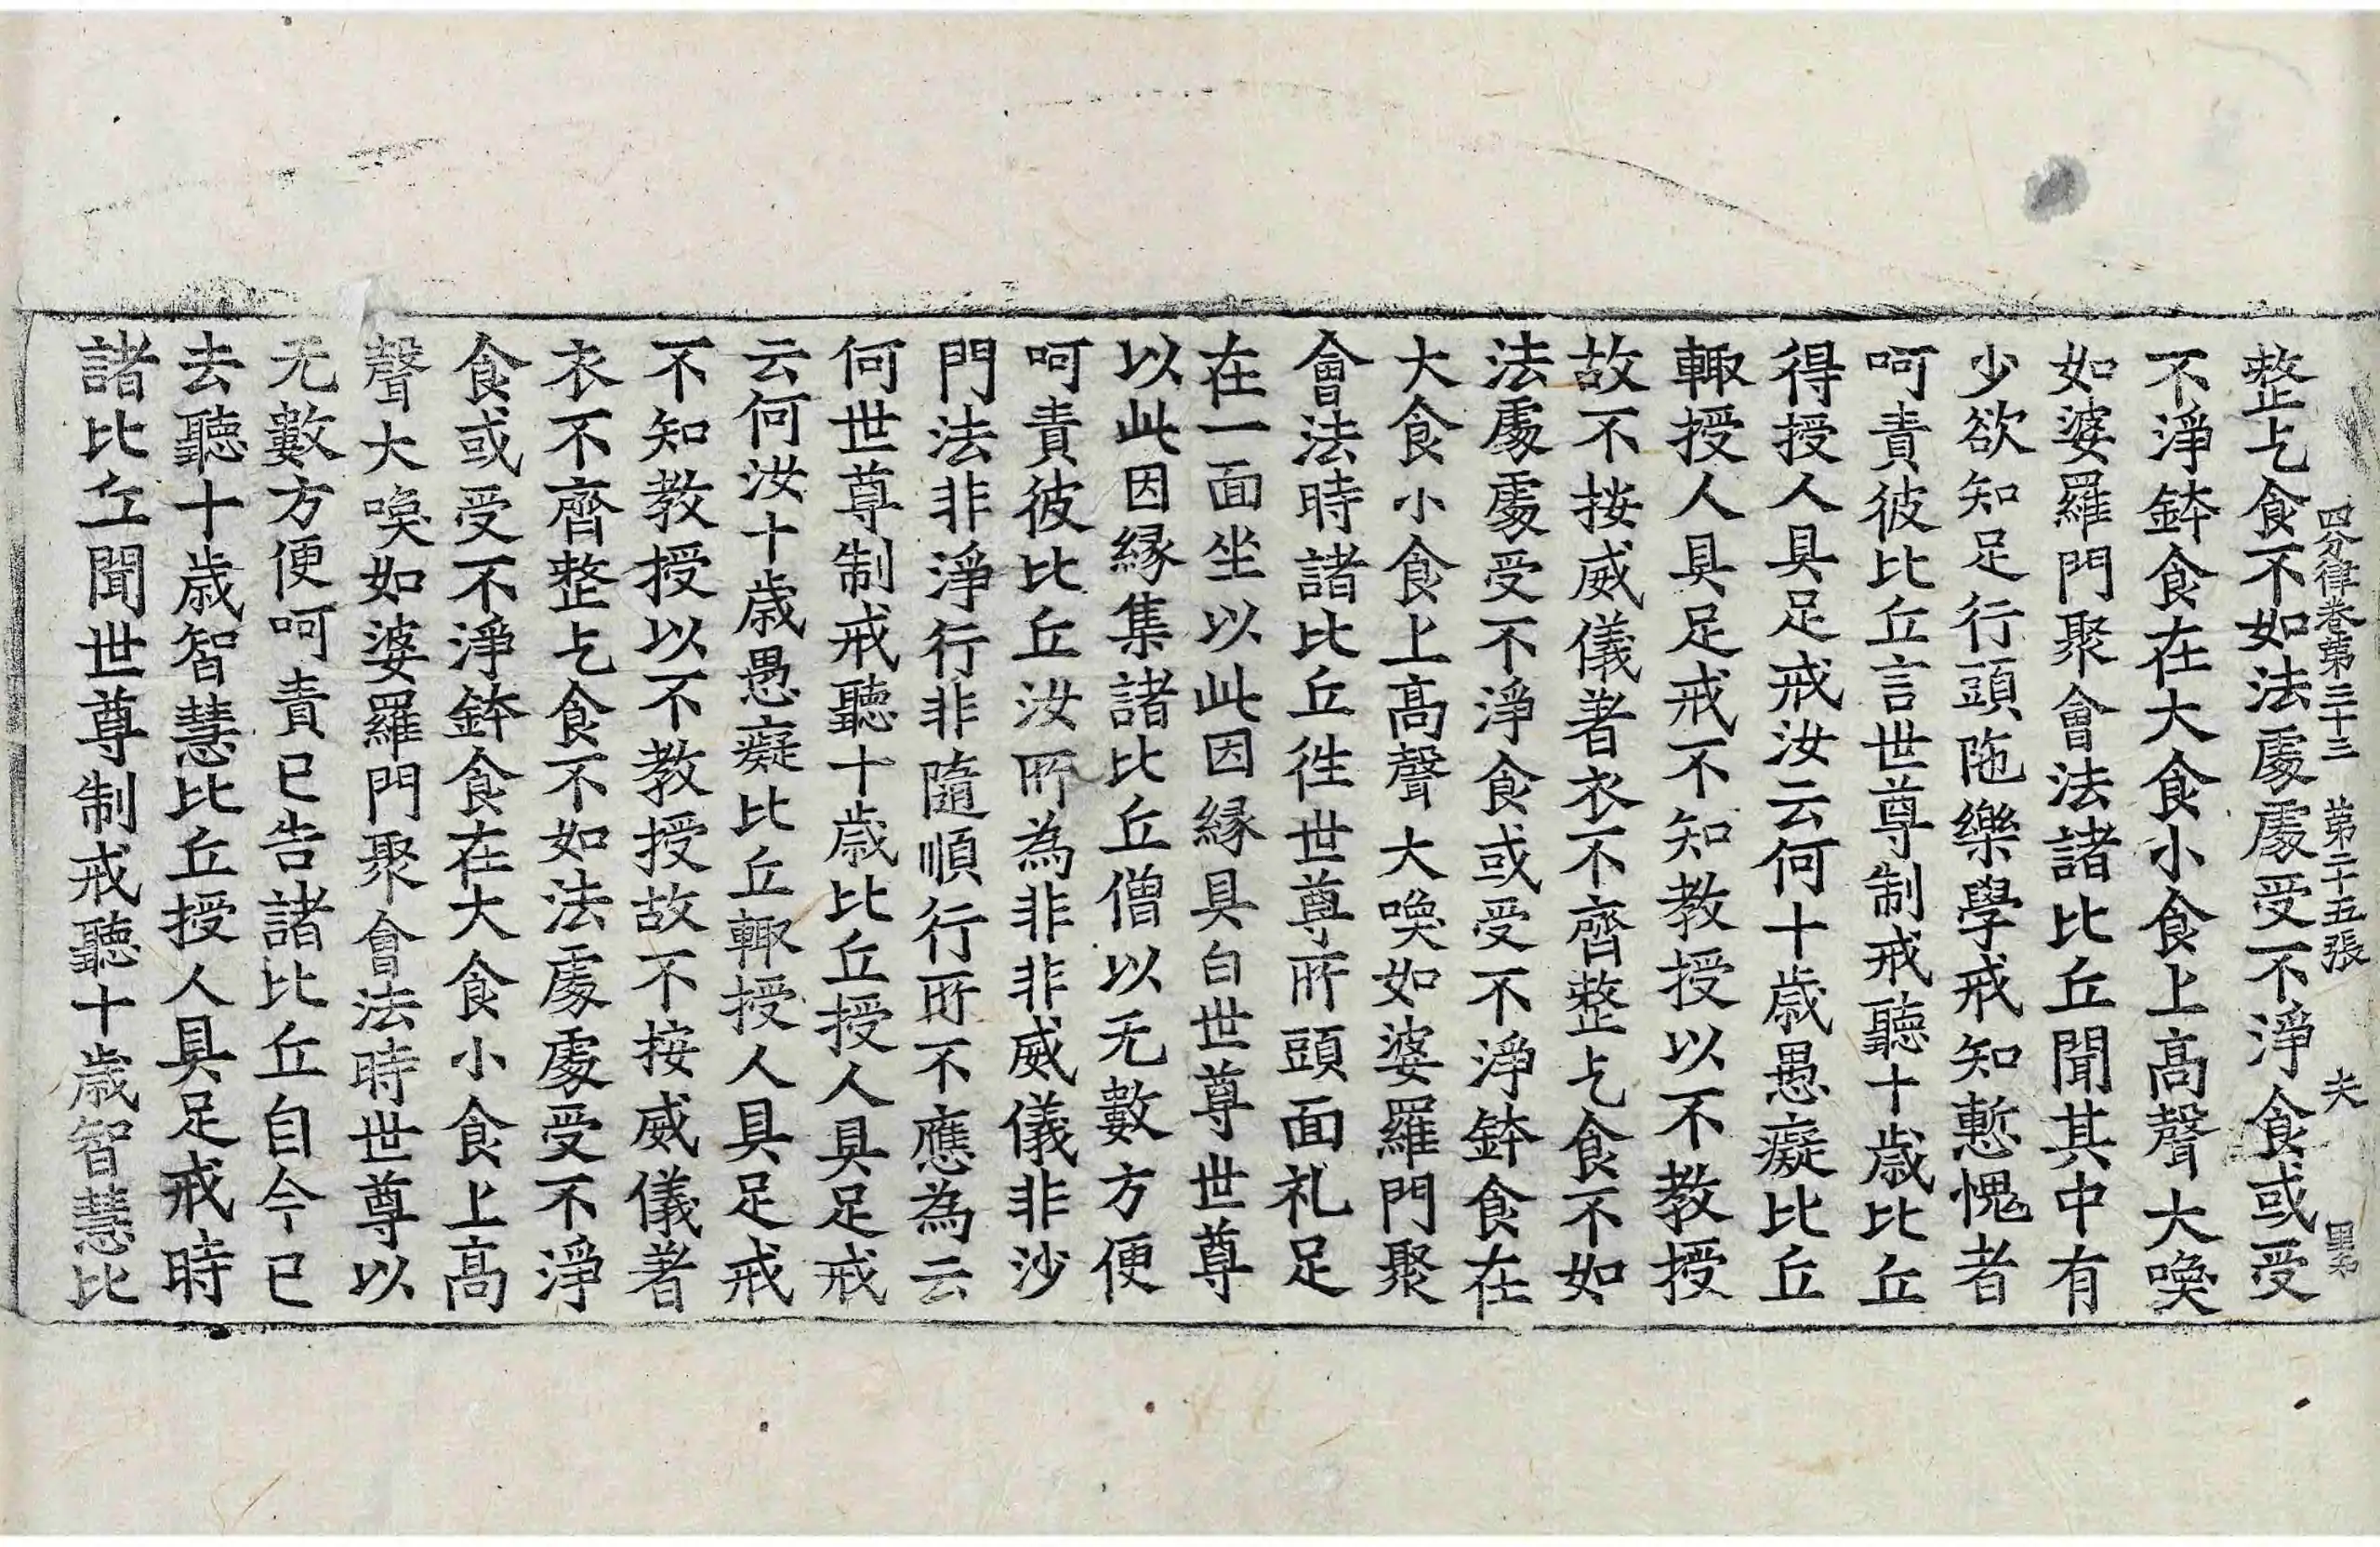 四分律卷第三十三 第二十五張 夫
整乞食不如法處處受不淨食或受
不淨鉢食在大食小食上高聲大喚
如婆羅門聚會法諸比丘聞其中有
少欲知足行頭陁樂學戒知慙愧者
呵責彼比丘言世尊制戒聽十歲比丘
得授人具足戒汝云何十歲愚癡比丘
輙授人具足戒不知教授以不教授
故不按威儀著衣不齊整乞食不如
法處處受不淨食或受不淨鉢食在
大食小食上高聲大喚如婆羅門聚
會法時諸比丘徃世尊所頭面礼足
在一面坐以此因縁具白世尊世尊
以此因縁集諸比丘僧以无數方便
呵責彼比丘汝所為非非威儀非沙
門法非淨行非隨順行所不應為云
何世尊制戒聽十歲比丘授人具足戒
云何汝十歲愚癡比丘輙授人具足戒
不知教授以不教授故不按威儀著
衣不齊整乞食不如法處處受不淨
食或受不淨鉢食在大食小食上高
聲大喚如婆羅門聚會法時世尊以
无數方便呵責已告諸比丘自今已
去聽十歲智慧比丘授人具足戒時
諸比丘聞世尊制戒聽十歲智慧比